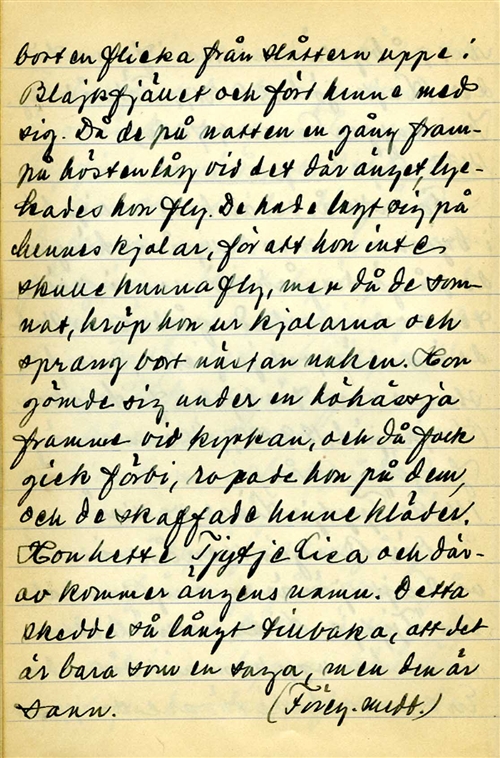 bort en flicka från slåttern uppe i
Blajksfjället och fört henne med
sig. Då de på natten en gång fram-
på hösten låg vid det där änget, lyc-
kades hon fly. De hade lagt sig på
hennes kjolar, för att hon inte
skulle kunna fly, men då de som-
nat, kröp hon ur kjolarna och
sprang bort nästan naken. Hon
gömde sig under en höhässja
framme vid kyrkan, och då folk
gick förbi, ropade hon på dem,
och de skaffade henne kläder.
Hon hette Tjytje Lisa och där-
av kommer ängens namn. Detta
skedde så långt tillbaka, att det
är bara som en saga, men den är
sann. (Föreg. medd.)